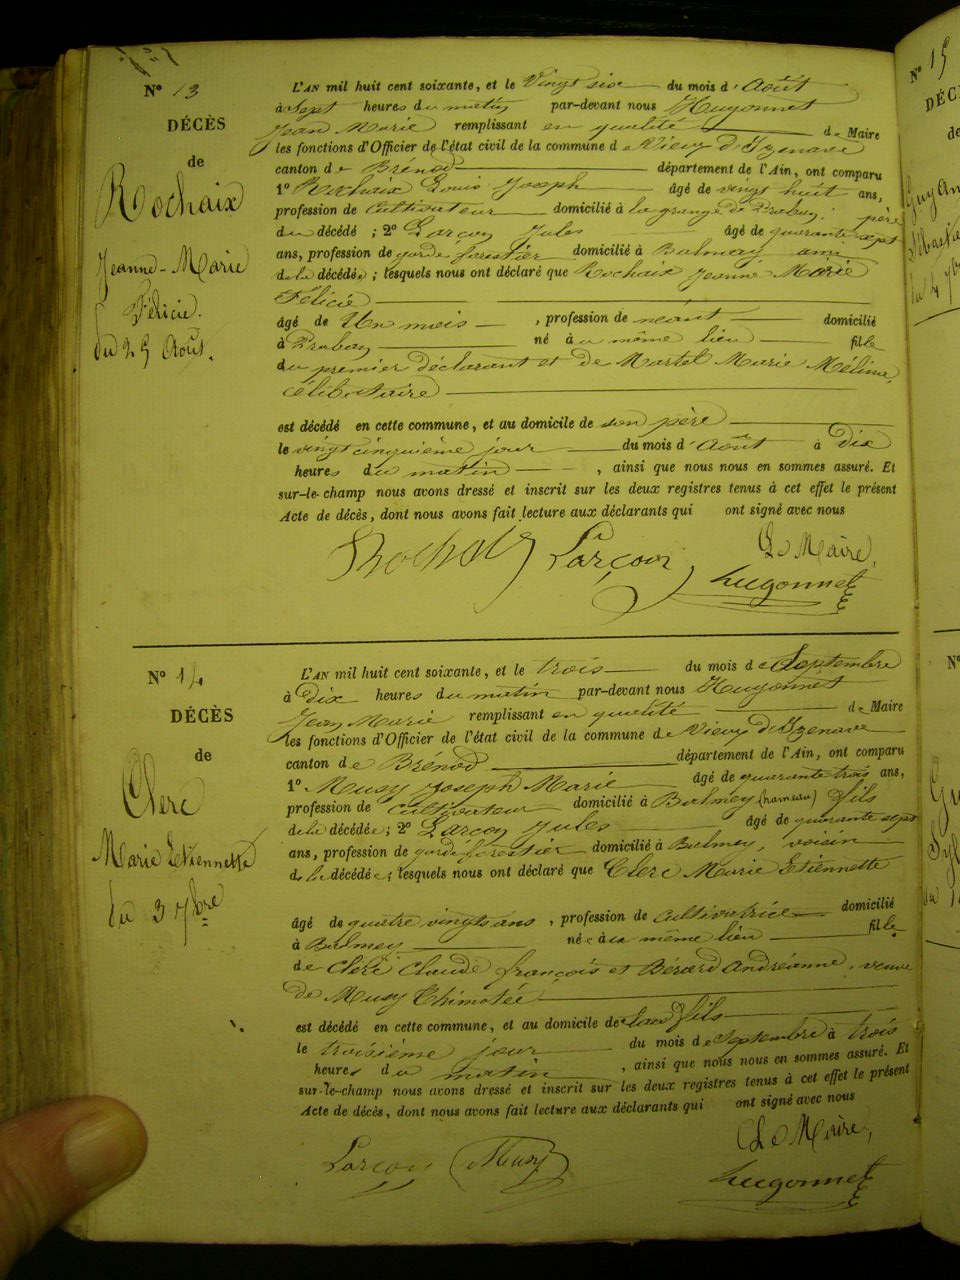 N° 13
DÉCÈS
de
Rochaix
Jeanne-Marie
Félicie.
du 25 Août.
L'AN mil huit cent soixante, et le Vingt six du mois d'Août
à Sept heures du matin par-devant nous Hugonnet
Jean Marie remplissant en qualité de Maire
les fonctions d'Officier de l'état civil de la commune de Vieux d'Izenave
canton de Brénod département de l'Ain, ont comparu
1° Rochaix Louis Joseph âgé de vingt huit ans,
profession de cultivateur domicilié à la grange de Prabay, père
du décédé ; 2° Larçon Jules âgé de quarante sept
ans, profession de garde forestier domicilié à Balmay ami
de la décédée ; lesquels nous ont déclaré que Rochaix Jeanne Marie
Félicie
âgé de Un mois , profession de néant domicilié
à Prabay né au même lieu fille
du premier déclarant et de Martel Marie Mélina,
célibataire
est décédé en cette commune, et au domicile de son père
le vingt cinquième jour du mois d'Août à Dix
heures du matin , ainsi que nous nous en sommes assuré. Et
sur-le-champ nous avons dressé et inscrit sur les deux registres tenus à cet effet le présent
Acte de décès, dont nous avons fait lecture aux déclarants qui ont signé avec nous
Le Maire,
Rochaix Larçon Hugonnet
N° 14
DÉCÈS
de
Clerc
Marie Etiennette
du 3 7bre
L'AN mil huit cent soixante, et le trois du mois de Septembre
à Dix heures du matin par-devant nous Hugonnet
Jean Marie remplissant en qualité de Maire
les fonctions d'Officier de l'état civil de la commune de Vieux d'Izenave
canton de Brénod département de l'Ain, ont comparu
1° Musy Joseph Marie âgé de quarante trois ans,
profession de cultivateur domicilié à Balmey (hameau) fils
de la décédée ; 2° Larçon Jules âgé de quarante sept
ans, profession de garde forestier domicilié à Balmey, voisin
de la décédée ; lesquels nous ont déclaré que Clerc Marie Etiennette
âgé de quatre vingts ans , profession de cultivatrice domicilié
à Balmey née au même lieu fille
de Clerc Claude françois et Bérard Andréanne, veuve
de Musy Thimotée
est décédé en cette commune, et au domicile de son fils
le troisième jour du mois de Septembre à trois
heures du matin , ainsi que nous nous en sommes assuré. Et
sur-le-champ nous avons dressé et inscrit sur les deux registres tenus à cet effet le présent
Acte de décès, dont nous avons fait lecture aux déclarants qui ont signé avec nous
Le Maire,
Larçon Musy Hugonnet
N° 15